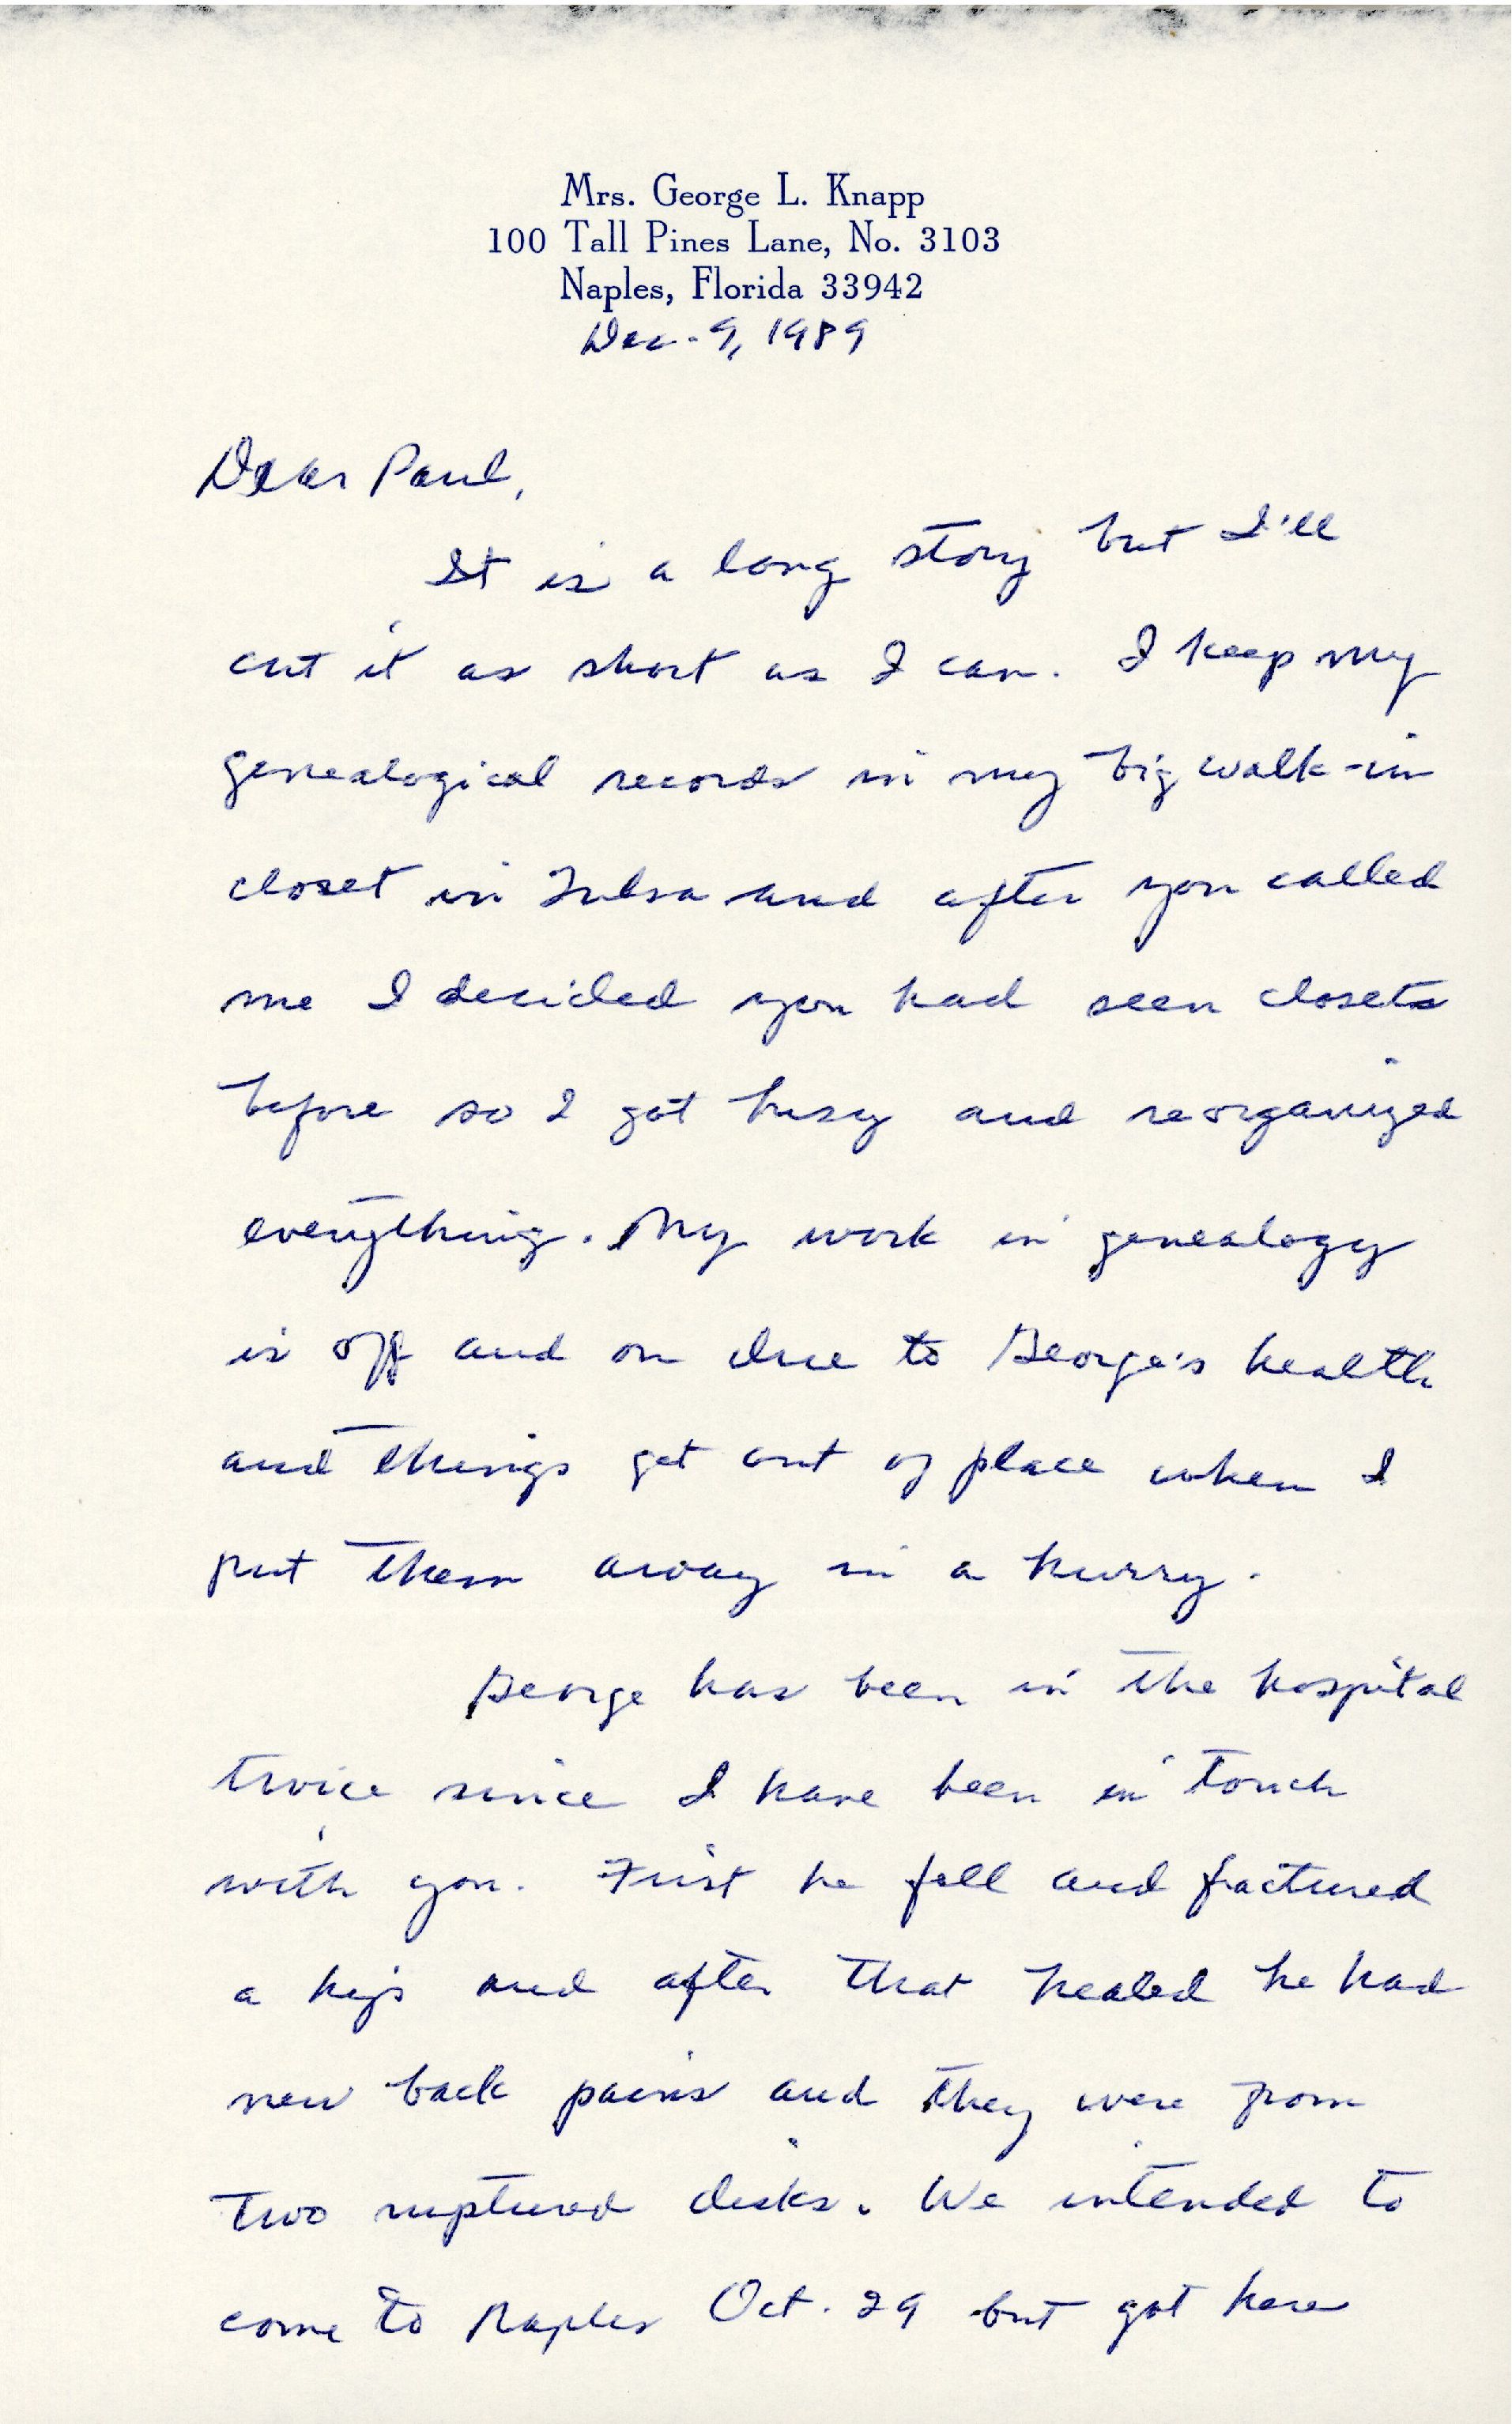 Mrs. George L. Knapp
100 Tall Pines Lane, No. 3103
Naples, Florida 33942
Dec. 9, 1989
Dear Paul,
It is a long story but I'll
cut it as short as I can. I keep my
genealogical records in my big walk-in
closet in Tulsa and after you called
me I decided you had seen closets
before so I got busy and reorganized
everything. My work in genealogy
is off and on due to George's health
and things get out of place when I
put them away in a hurry.
George has been in the hospital
twice since I have been in touch
with you. First he fell and fractured
a hip and after that healed he had
new back pains and they were from
two ruptured disks. We intended to
come to Naples Oct. 29 but got here